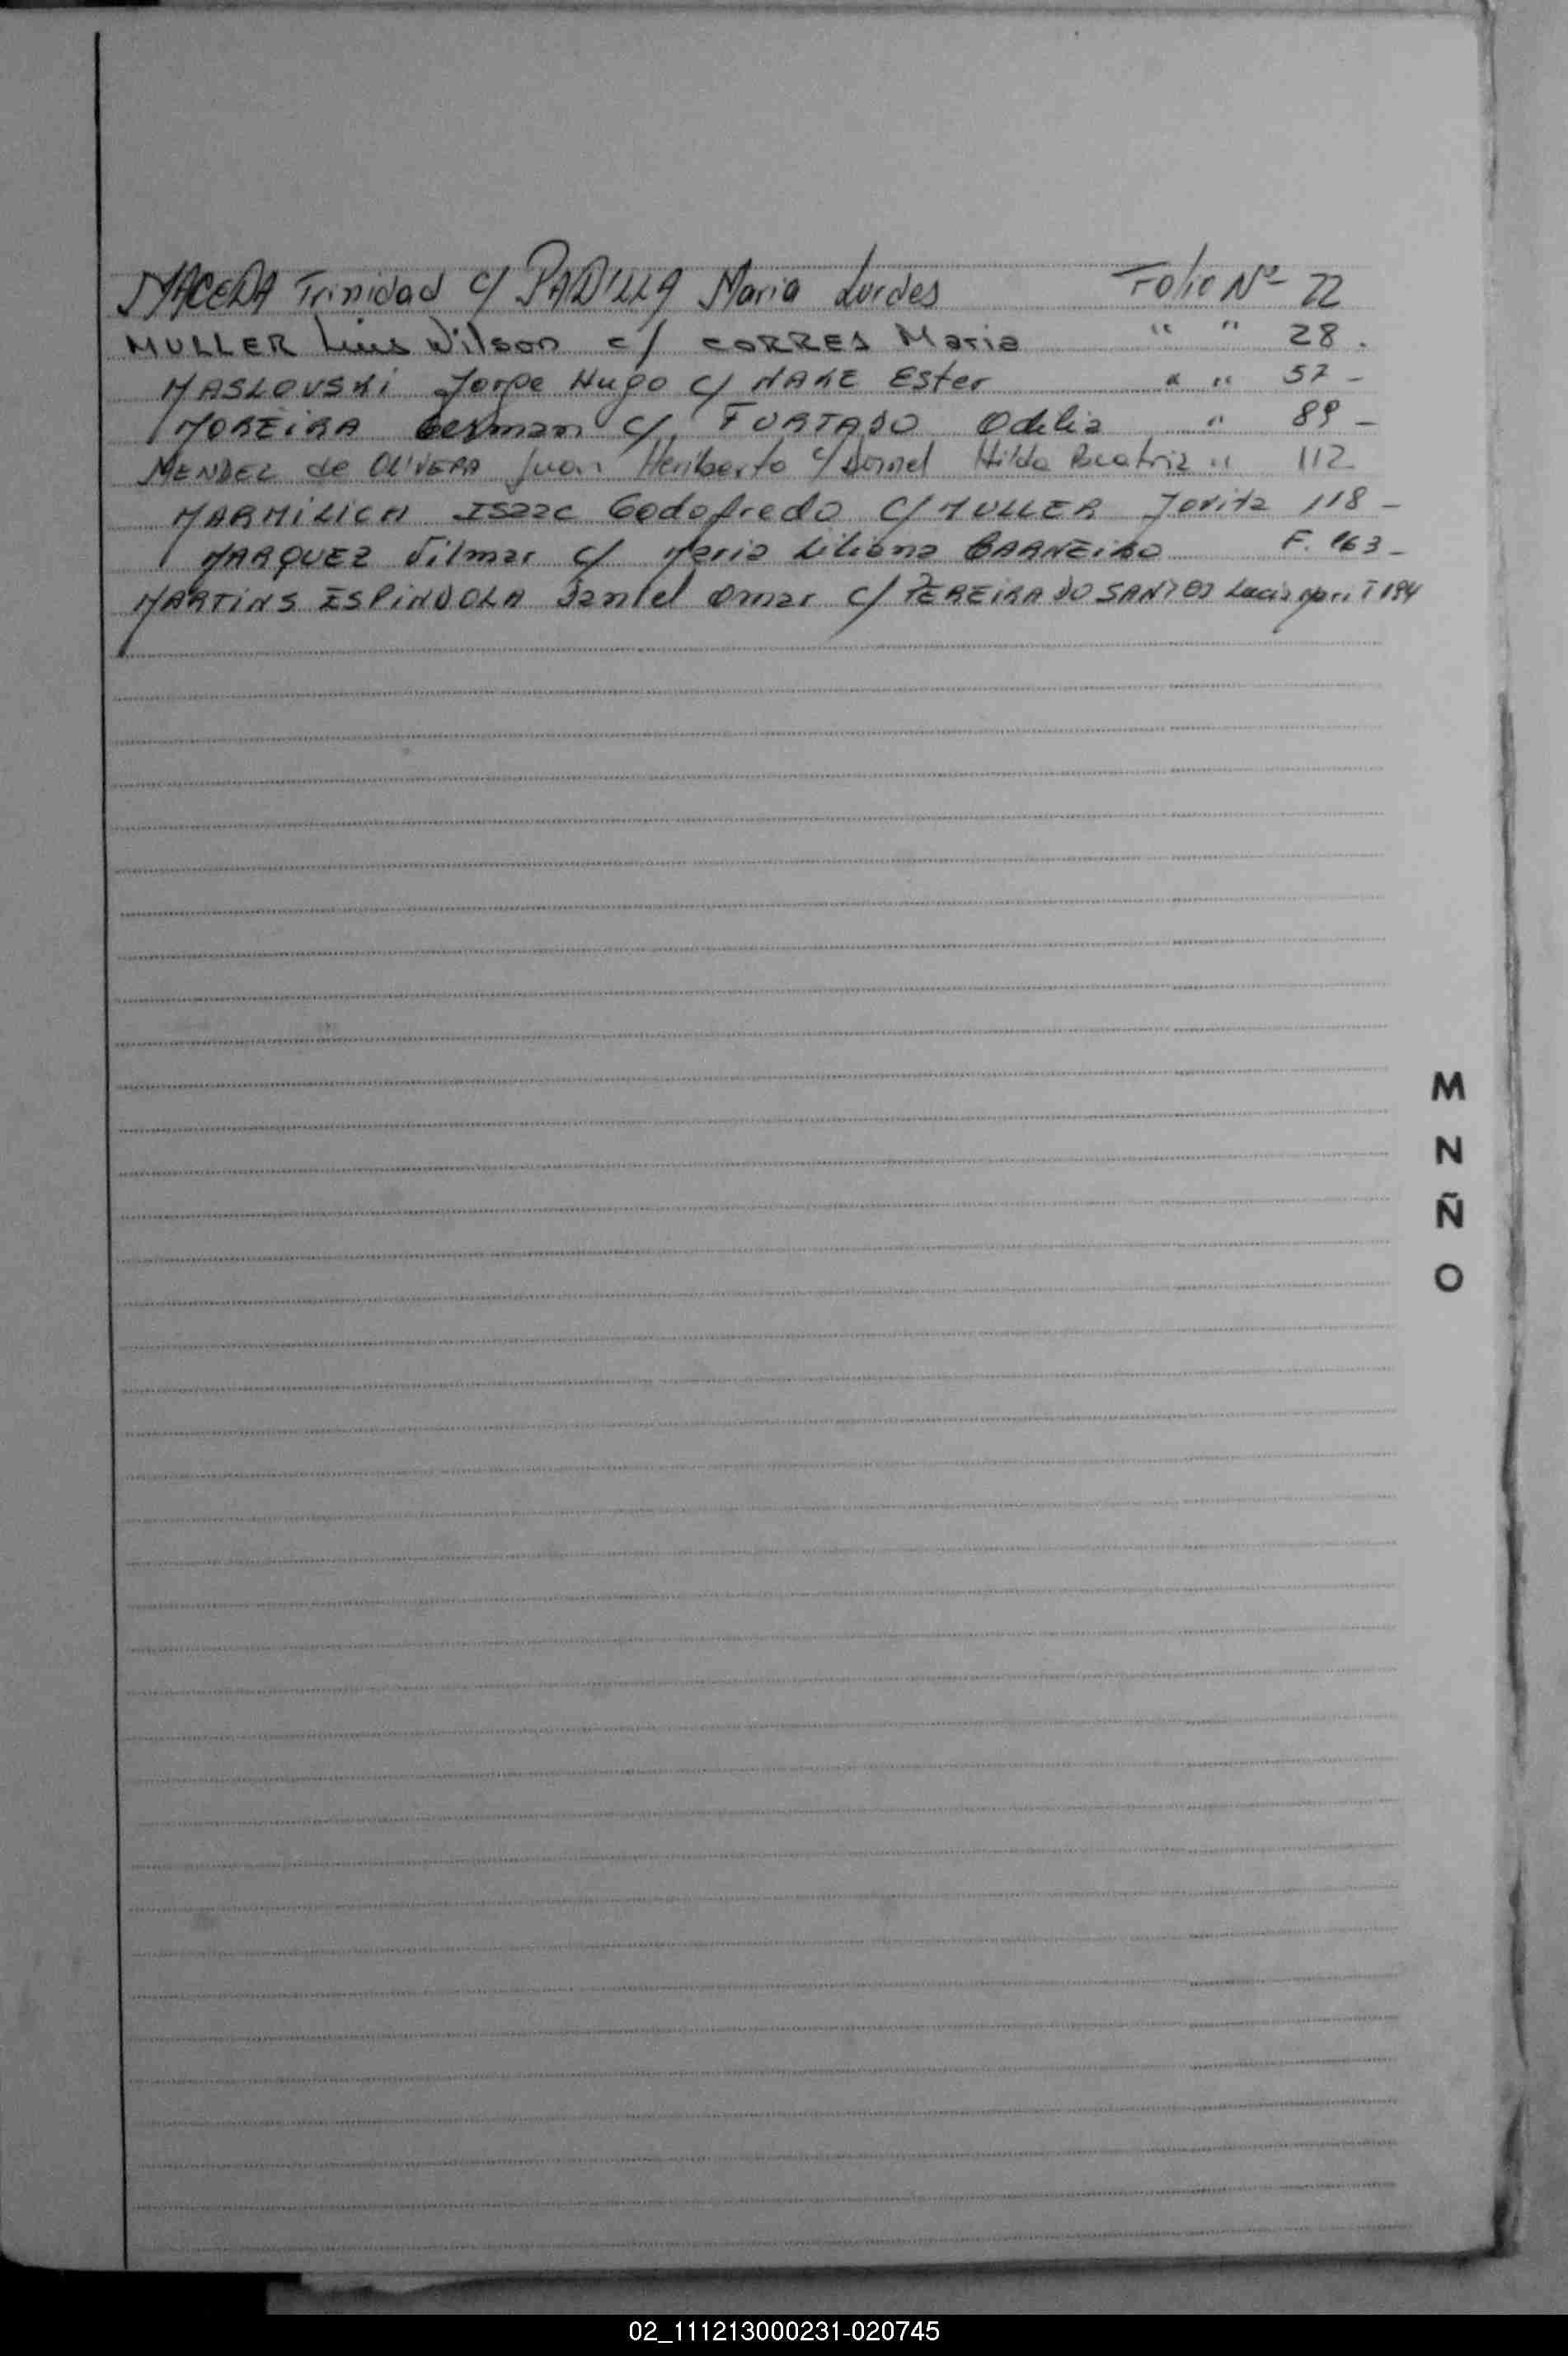 MACEDA Trinidad c/ PADILLA Maria Lurdes Folio Nº 22
MULLER Luis Wilson c/ CORRES Maria " " 28.
MASLOVSKI Jorge Hugo c/ NAKE Ester " " 57 -
MOREIRA German c/ FURTADO Odilia " 89 -
MENDEZ de OLIVERA Juan Heriberto c/ Dornel Hilda Beatriz " 112
MARMILICH Isaac Godofredo c/ MULLER Jovita 118 -
MARQUEZ Vilmar c/ Maria Liliana CARNEIRO F. 163 -
MARTINS ESPINDOLA Daniel Omar c/ PEREIRA DO SANTOS Lucia 194
M
N
Ñ
O
02_111213000231-020745